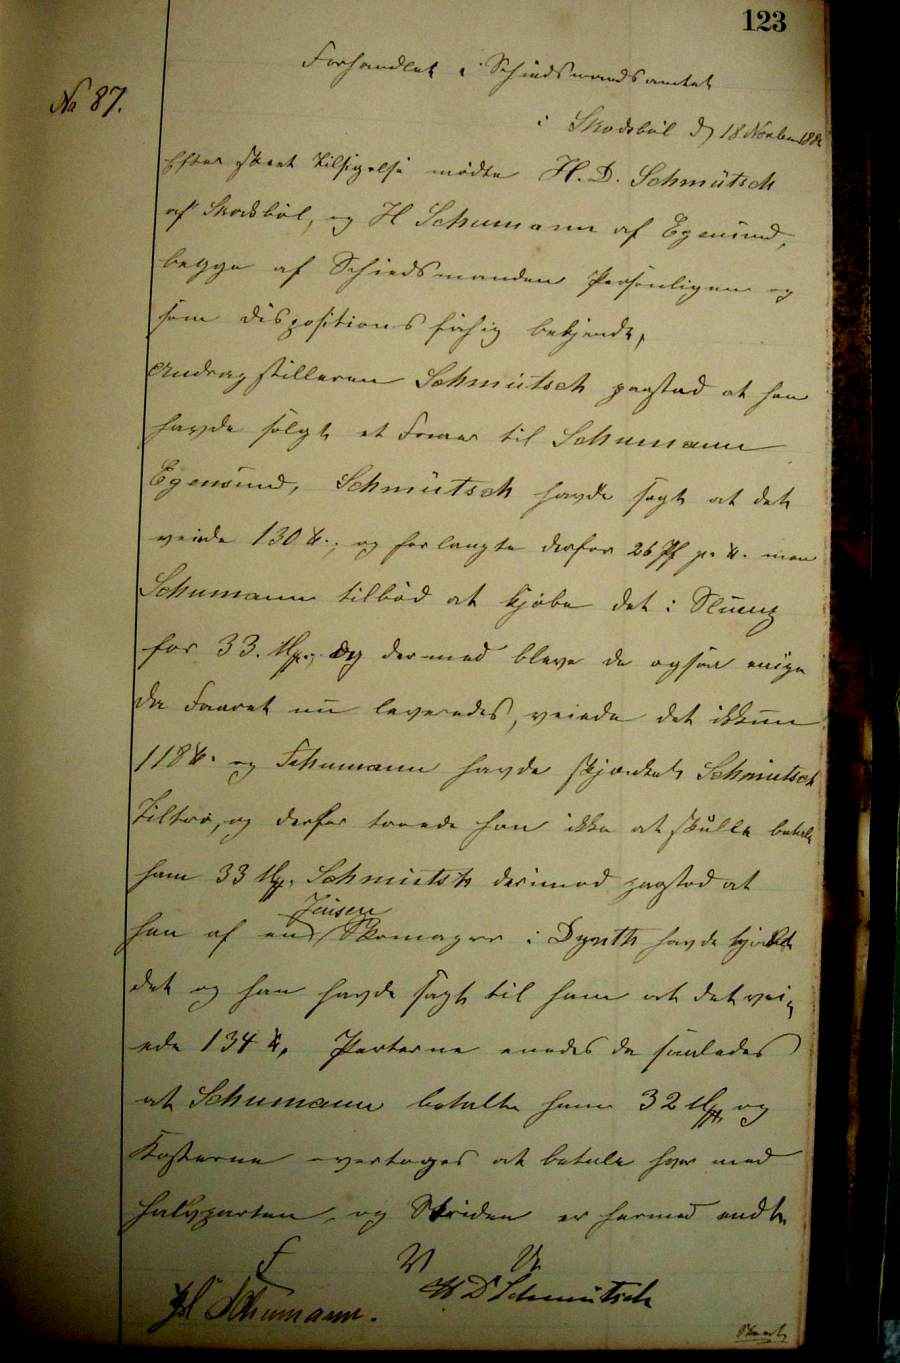 123
No 87.
Forhandlet i Schiedsmandsamtet
i Skodsbøl d 18 November
Efter skeet Tilsigelse mødte H. D. Schmütsch
af Skodsbøl, og H Schumann af Egensund,
begge af Schiedsmanden Personligen og
som dispositionsfæhig bekjendt,
Andragstilleren Schmütsch paastod at han
havde solgt et Faar til Schumann
Egensund, Schmütsch havde sagt at det
veiede 130 ℔., og forlangte derfor 26 Pf pr ℔. men
Schumann tilbød at kjøbe det i Slump
for 33. M., og dermed bleve de ogsaa enige
da Faaret nu leveredes, veiede det ikkun
118 ℔. og Schumann havde skjænket Schmütsch
Tiltro, og derfor troede han ikke at skulle betale
ham 33 M, Schmütsch derimod paastod at
han af en Jensen Skomager i Dynth havde kjøbt
det og han havde sagt til ham at det vei-
ede 134 ℔, Parterne enedes da saaledes
at Schumann betalte ham 32 M, og
Kosterne overtoges at betale hver med
Halvparten, og Striden er hermed endt.
F V U
H Schumann. H D Schmütsch